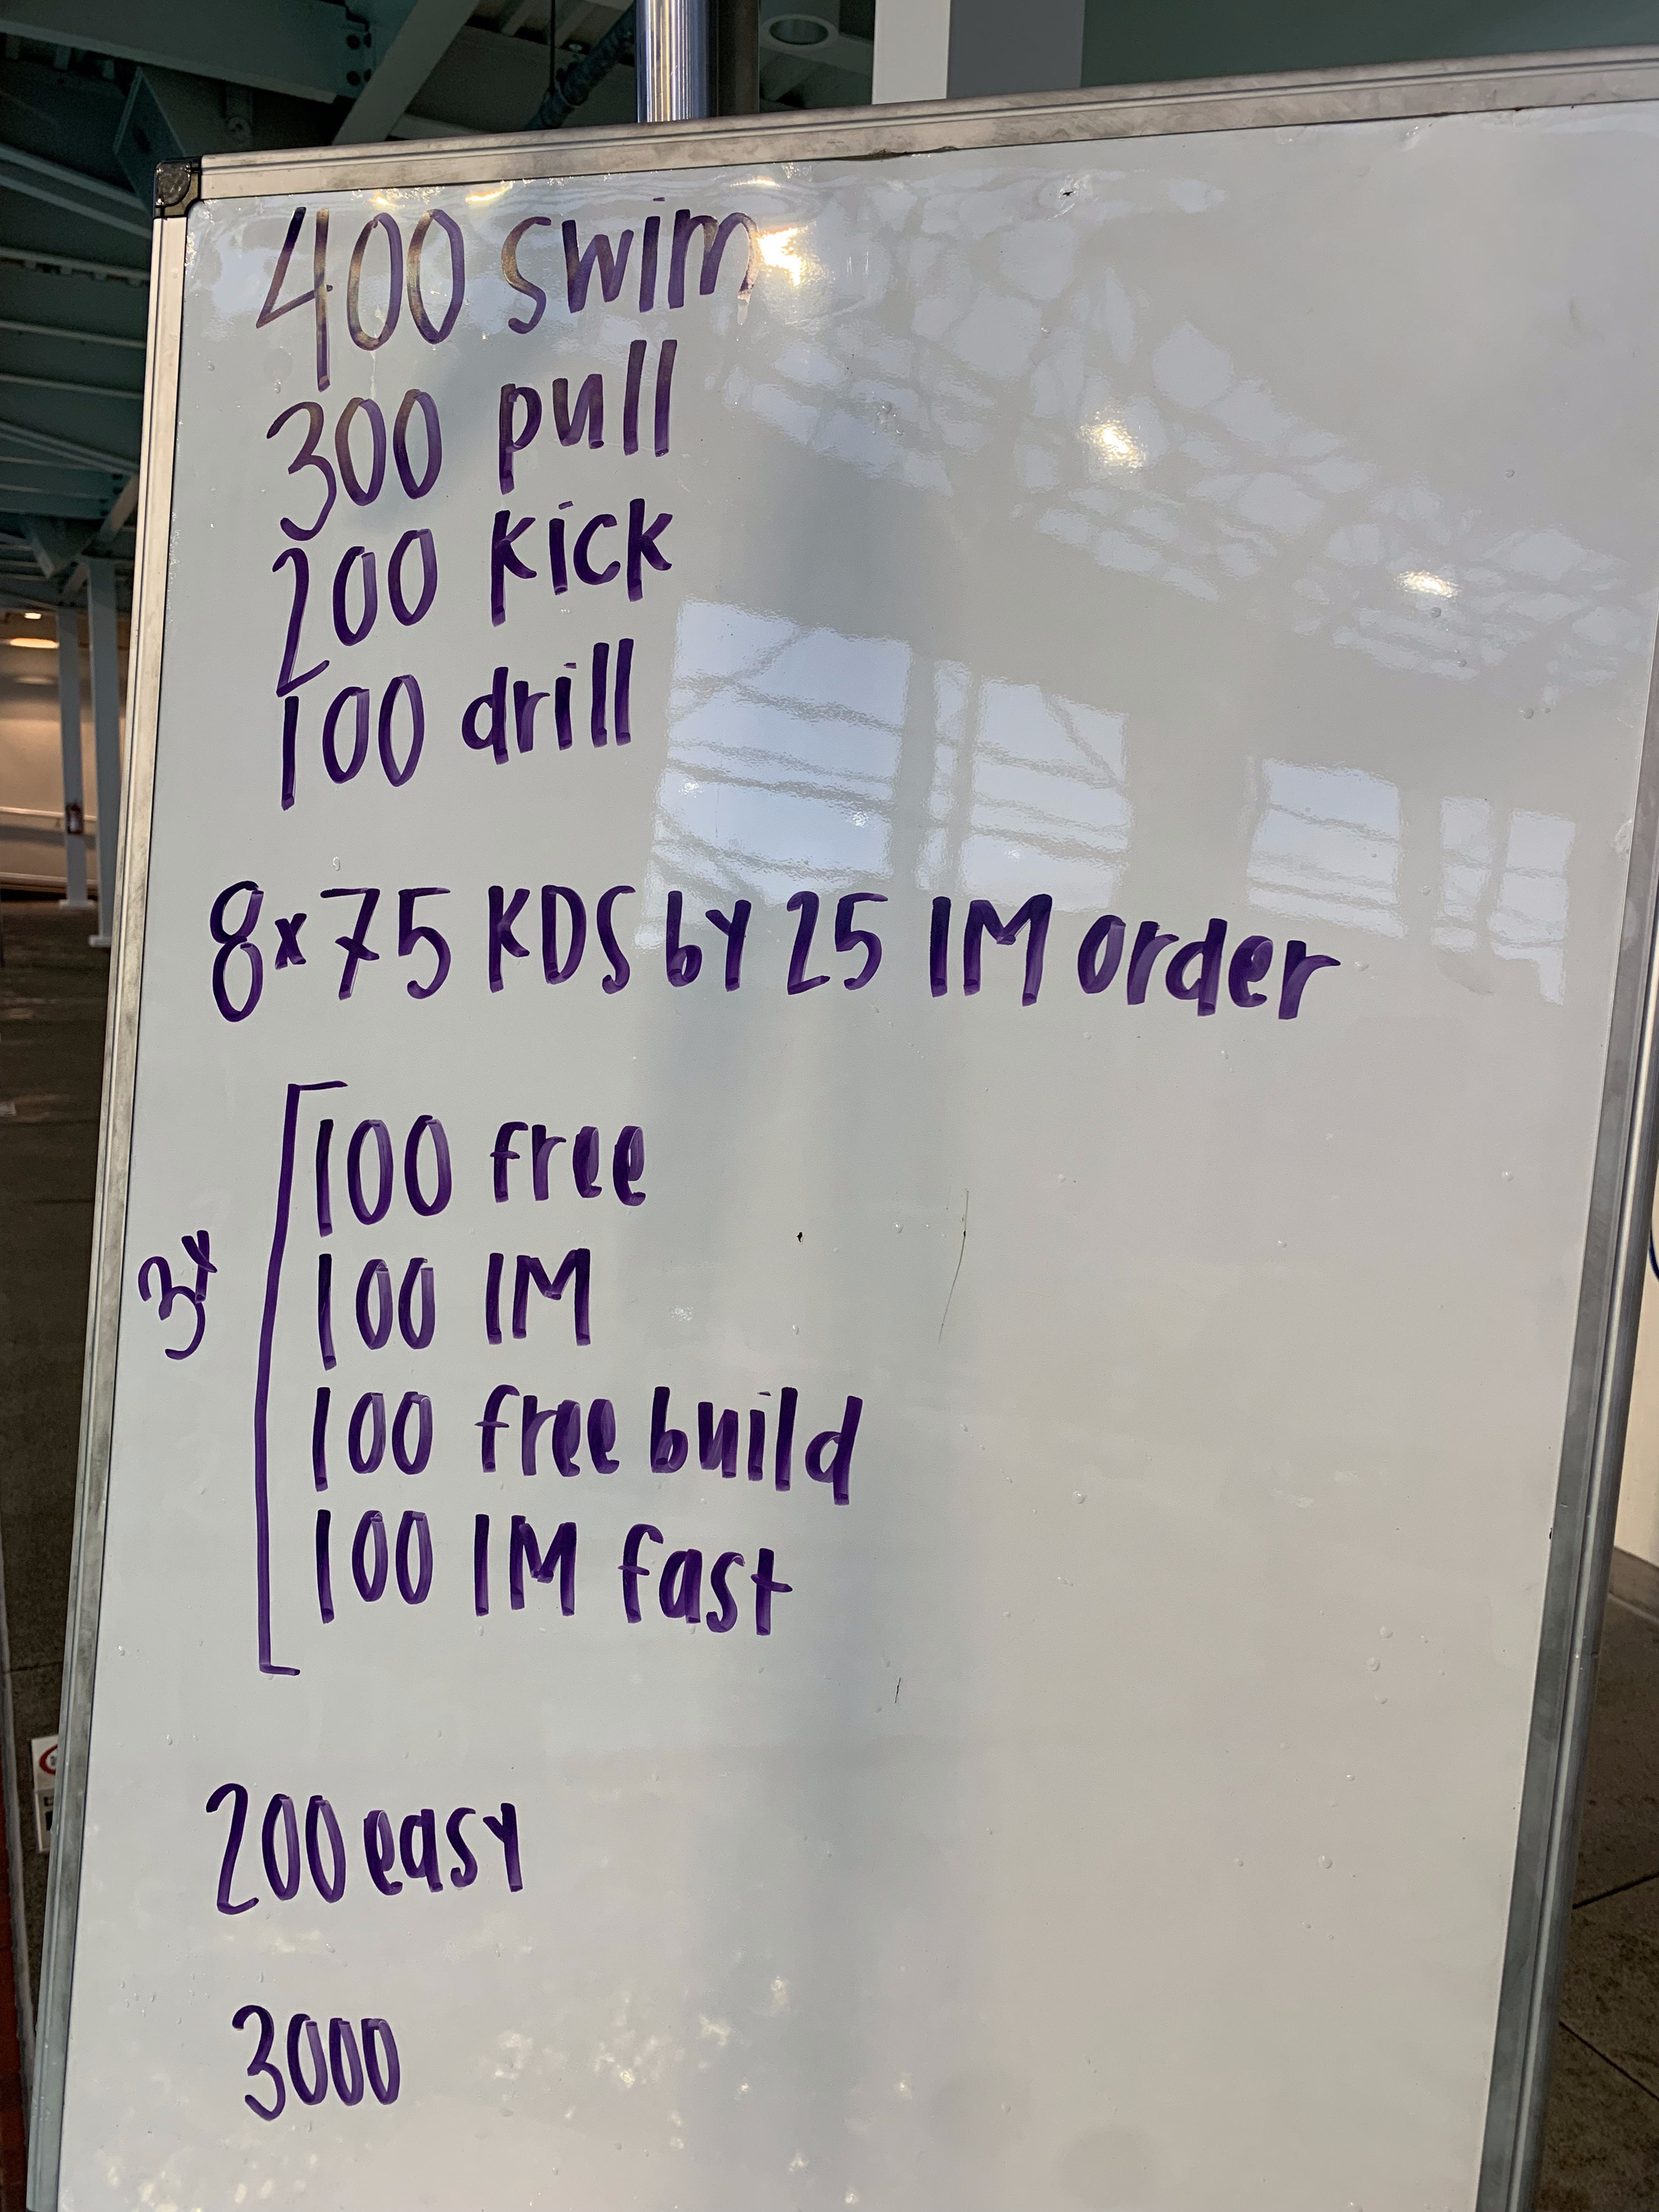 400 swim
300 pull
200 kick
100 drill
8x75 KDS by 25 IM order
3x
100 free
100 IM
100 free build
100 IM fast
200 easy
3000